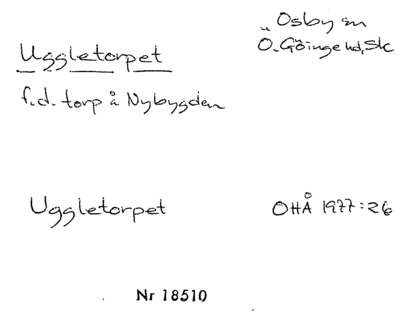 Uggletorpet
f.d. torp å Nybygden
Osby sn
Ö. Göinge hd, Sk
Uggletorpet
OHÅ 1977:26
Nr 18510